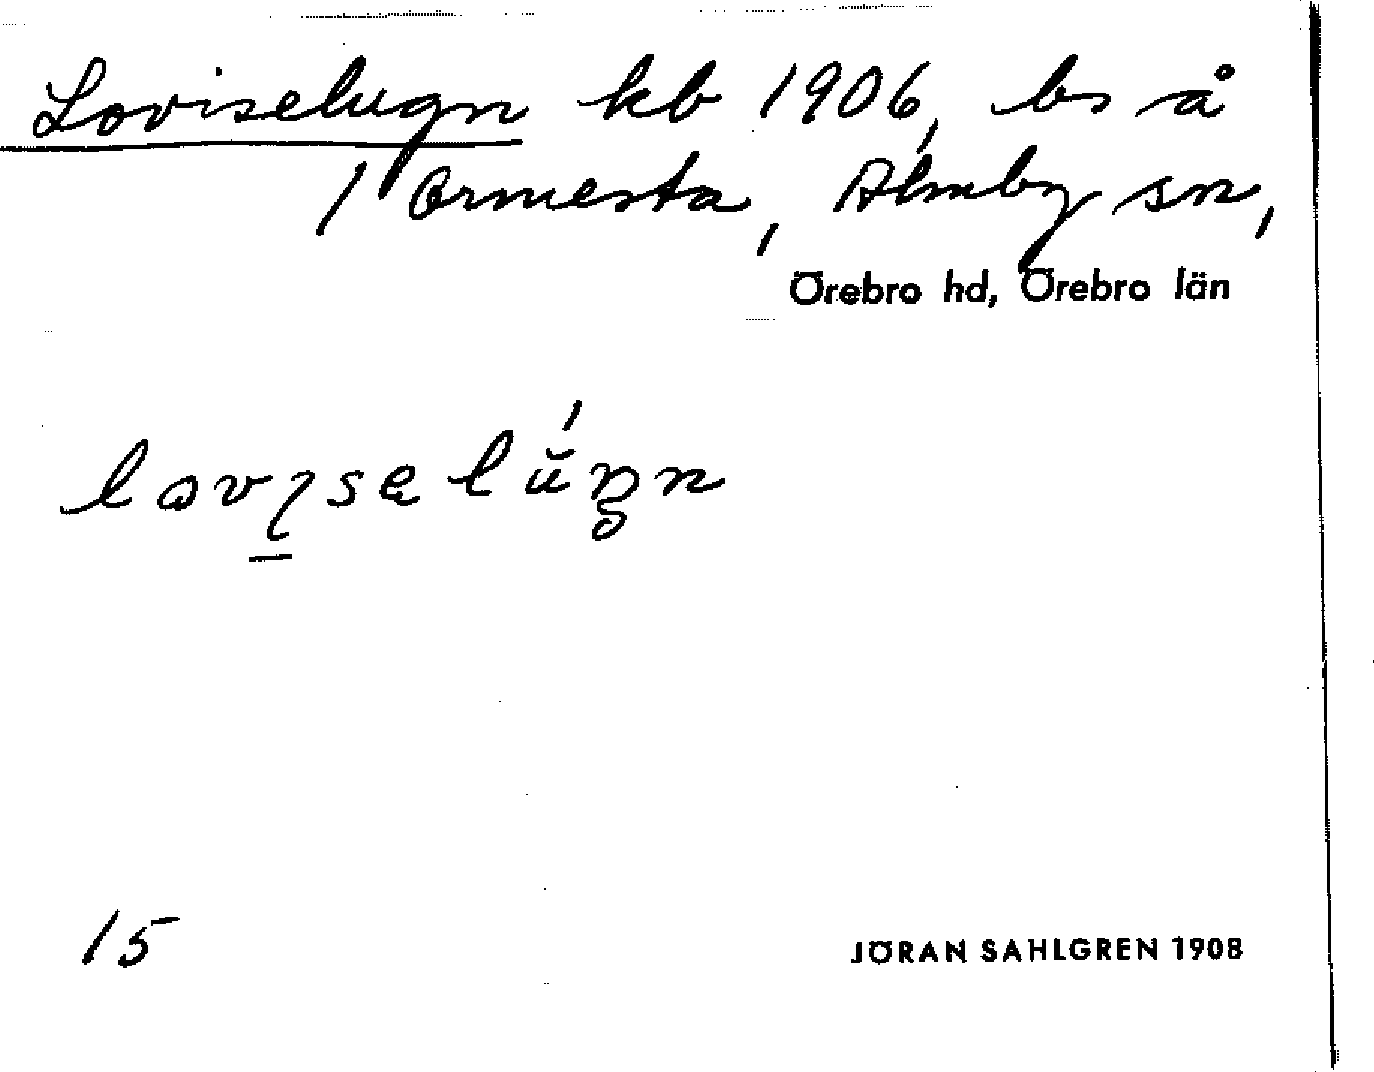 Loviselugn kb 1906, bs å
1 Ormesta, Almby sn,
Örebro hd, Örebro län
15
JÖRAN SAHLGREN 1908